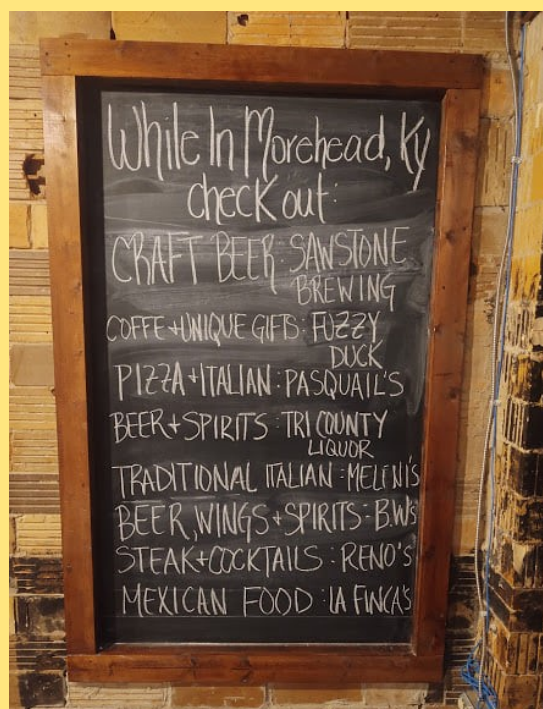 While In Morehead, Ky
check out:
CRAFT BEER: SAWSTONE
BREWING
COFFE + UNIQUE GIFTS: FUZZY
DUCK
PIZZA + ITALIAN: PASQUAIL'S
BEER + SPIRITS: TRI COUNTY
LIQUOR
TRADITIONAL ITALIAN: MELINI'S
BEER, WINGS + SPIRITS - B.W's
STEAK + COCKTAILS: RENO'S
MEXICAN FOOD: LA FINCA'S